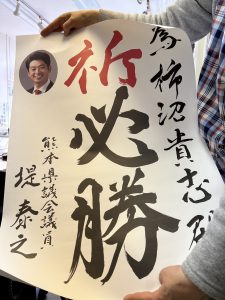 為 柿沼貴志 殿
祈
必勝
熊本県議会議員
堤泰之